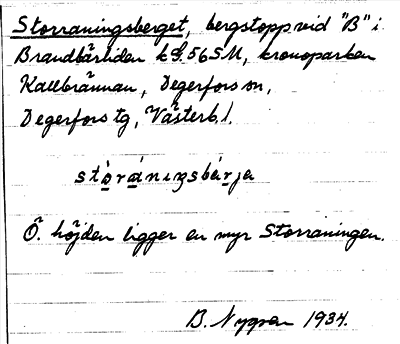 Storraningsberget, bergstopp vid "B" i
Brandbärliden kS. 56 SM, kronoparken
Kallbrännan, Degerfors sn,
Degerfors tg, Västerb. l.
stòrániŋsbár̀ja
Ö. höjden ligger en myr Storraningen.
B. Nygren 1934.